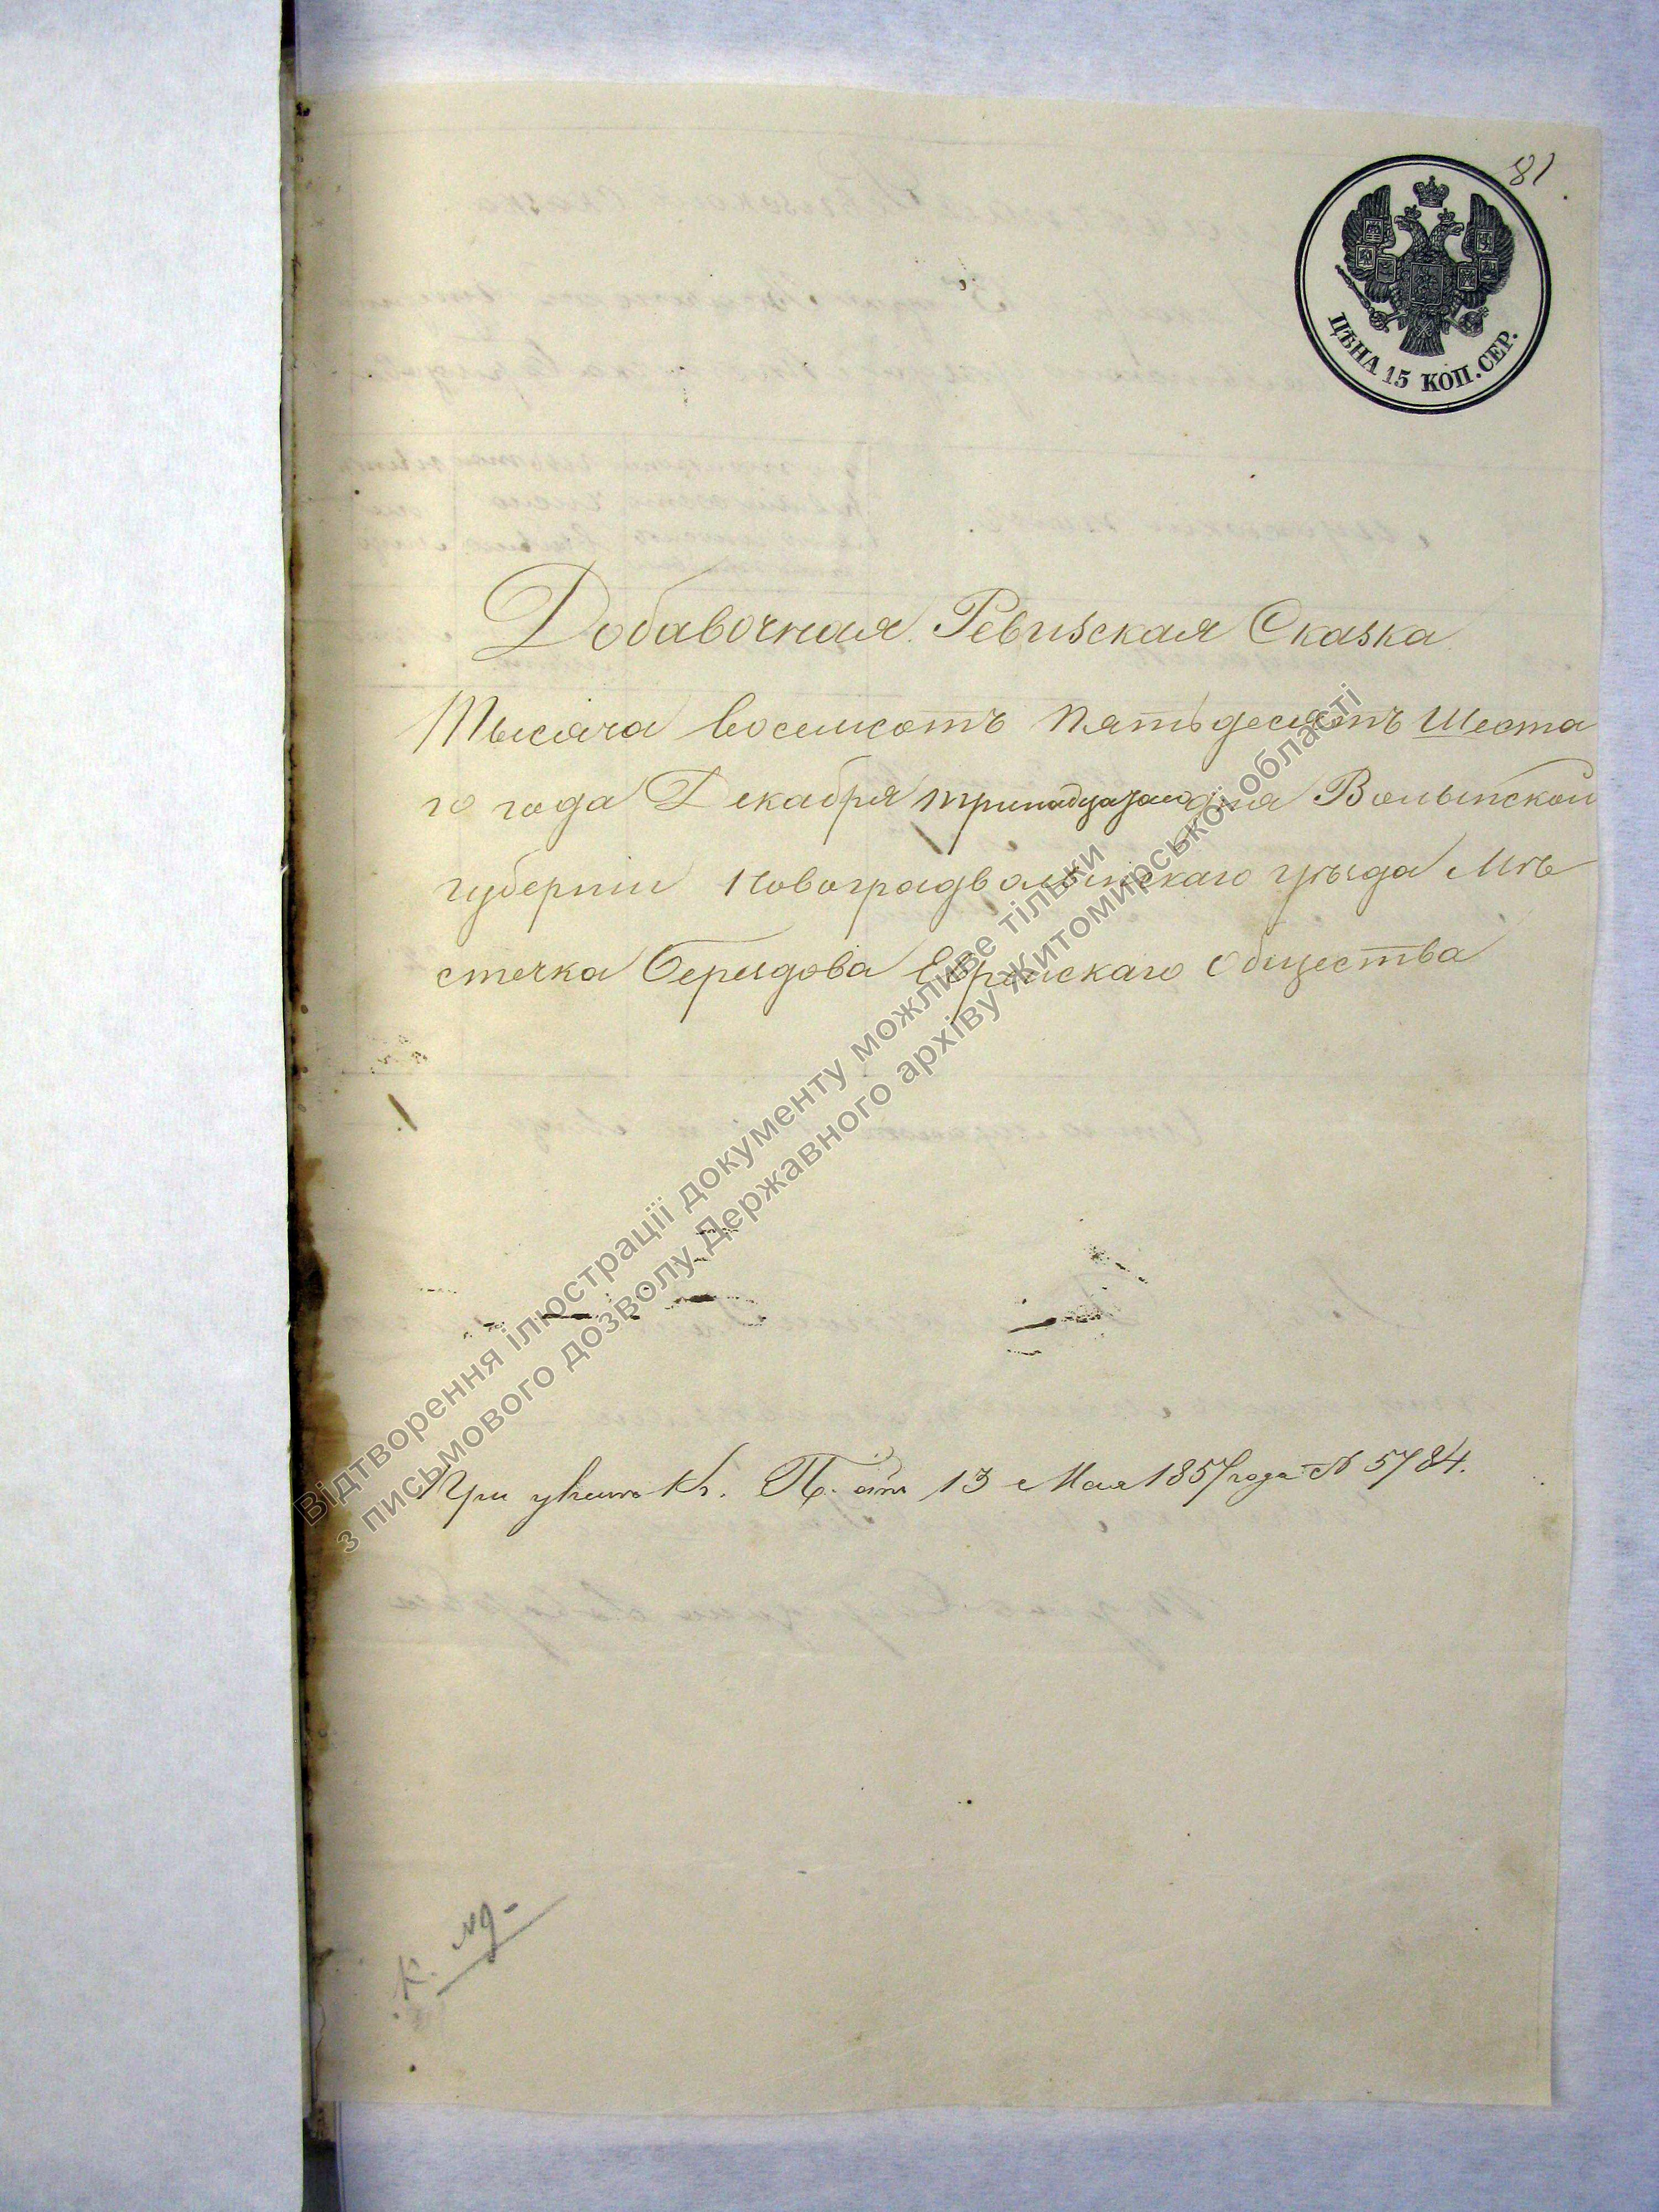 81
ЦѢНА 15 КОП. СЕР.
Добавочная Ревизская Сказка
Тысяча восемсотъ пятьдесятъ шеста
го года Декабря тринадцатого дня Волынской
губерніи Новоградволынскаго уѣзда Мѣ
стечка Берездова Еврейскаго Общества
При указѣ К. П. отъ 13 Мая 1857 года № 5784.
Відтворення ілюстрації документу можливе тільки
з письмового дозволу Державного архіву Житомирської області